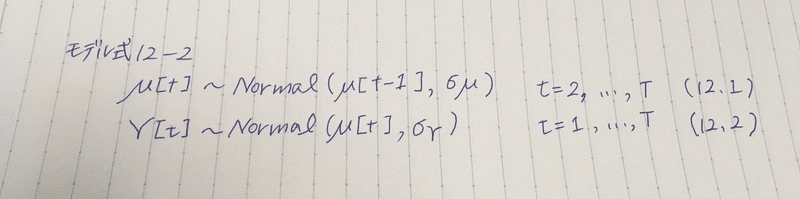 モデル式12-2
μ[t] ~ Normal(μ[t-1], σμ) t=2, ..., T (12.1)
Y[t] ~ Normal(μ[t], σY) t=1, ..., T (12.2)